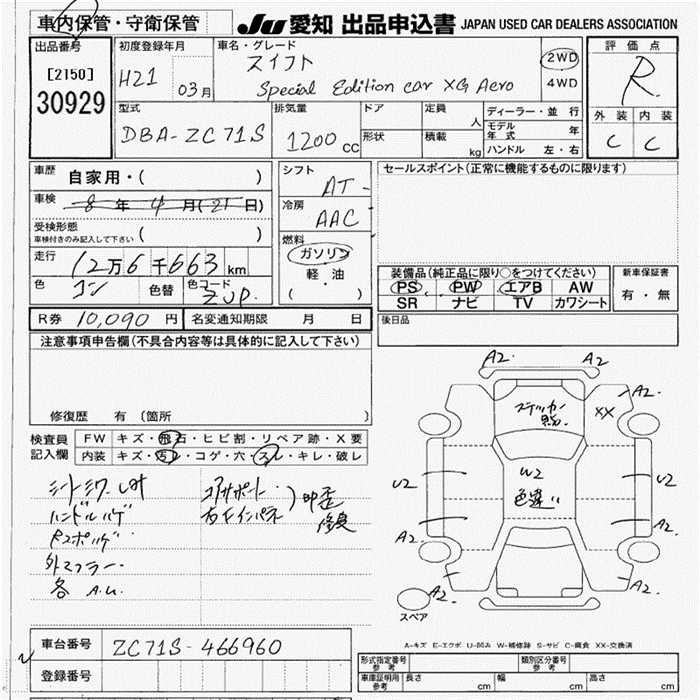 車内保管・守衛保管
JU 愛知 出品申込書 JAPAN USED CAR DEALERS ASSOCIATION
出品番号
[2150]
30929
初度登録年月
H21 03月
車名・グレード
スイフト
Special Edition car XG Aero
2WD
4WD
評価点
R
外装 内装
C C
型式
DBA-ZC71S
排気量
1200cc
ドア
形状
定員
人
積載
kg
ディーラー・並行
モデル年式 年
ハンドル 左・右
車歴 自家用・( )
車検 8年4月(21日)
受検形態
車検付きのみ記入して下さい ( )
走行 12万6千663km
色 コン 色替 色コード ZJP
シフト
AT
冷房
AAC
燃料
ガソリン
軽・油
( ・ )
セールスポイント(正常に機能するものに限ります)
装備品(純正品に限り○をつけてください)
PS PW エアB AW
SR ナビ TV カワシート
新車保証書
有・無
R券 10,090円 名変通知期限 月 日
後日品
注意事項申告欄(不具合内容等は具体的に記入して下さい)
修復歴 有(箇所 )
検査員記入欄
FW キズ・飛石・ヒビ割・リペア跡・X要
内装 キズ・汚レ・コゲ・穴・スレ・キレ・破レ
ハンドルハゲ
外マフラー
各 A.U.
コアサポート
右インパネ
修复
A2. A2
A2.
XX
ステッカー
U2
W2
色違い
U2
A2. A2.
A2. A2.
スペア
A-キズ E-エクボ U-凹み W-補修跡 S-サビ C-腐食 XX-交換済
車台番号 ZC71S-466960
登録番号
型式指定番号
参考
類別区分番号
参考
車庫証明用
参考
長さ cm 幅 cm 高さ cm